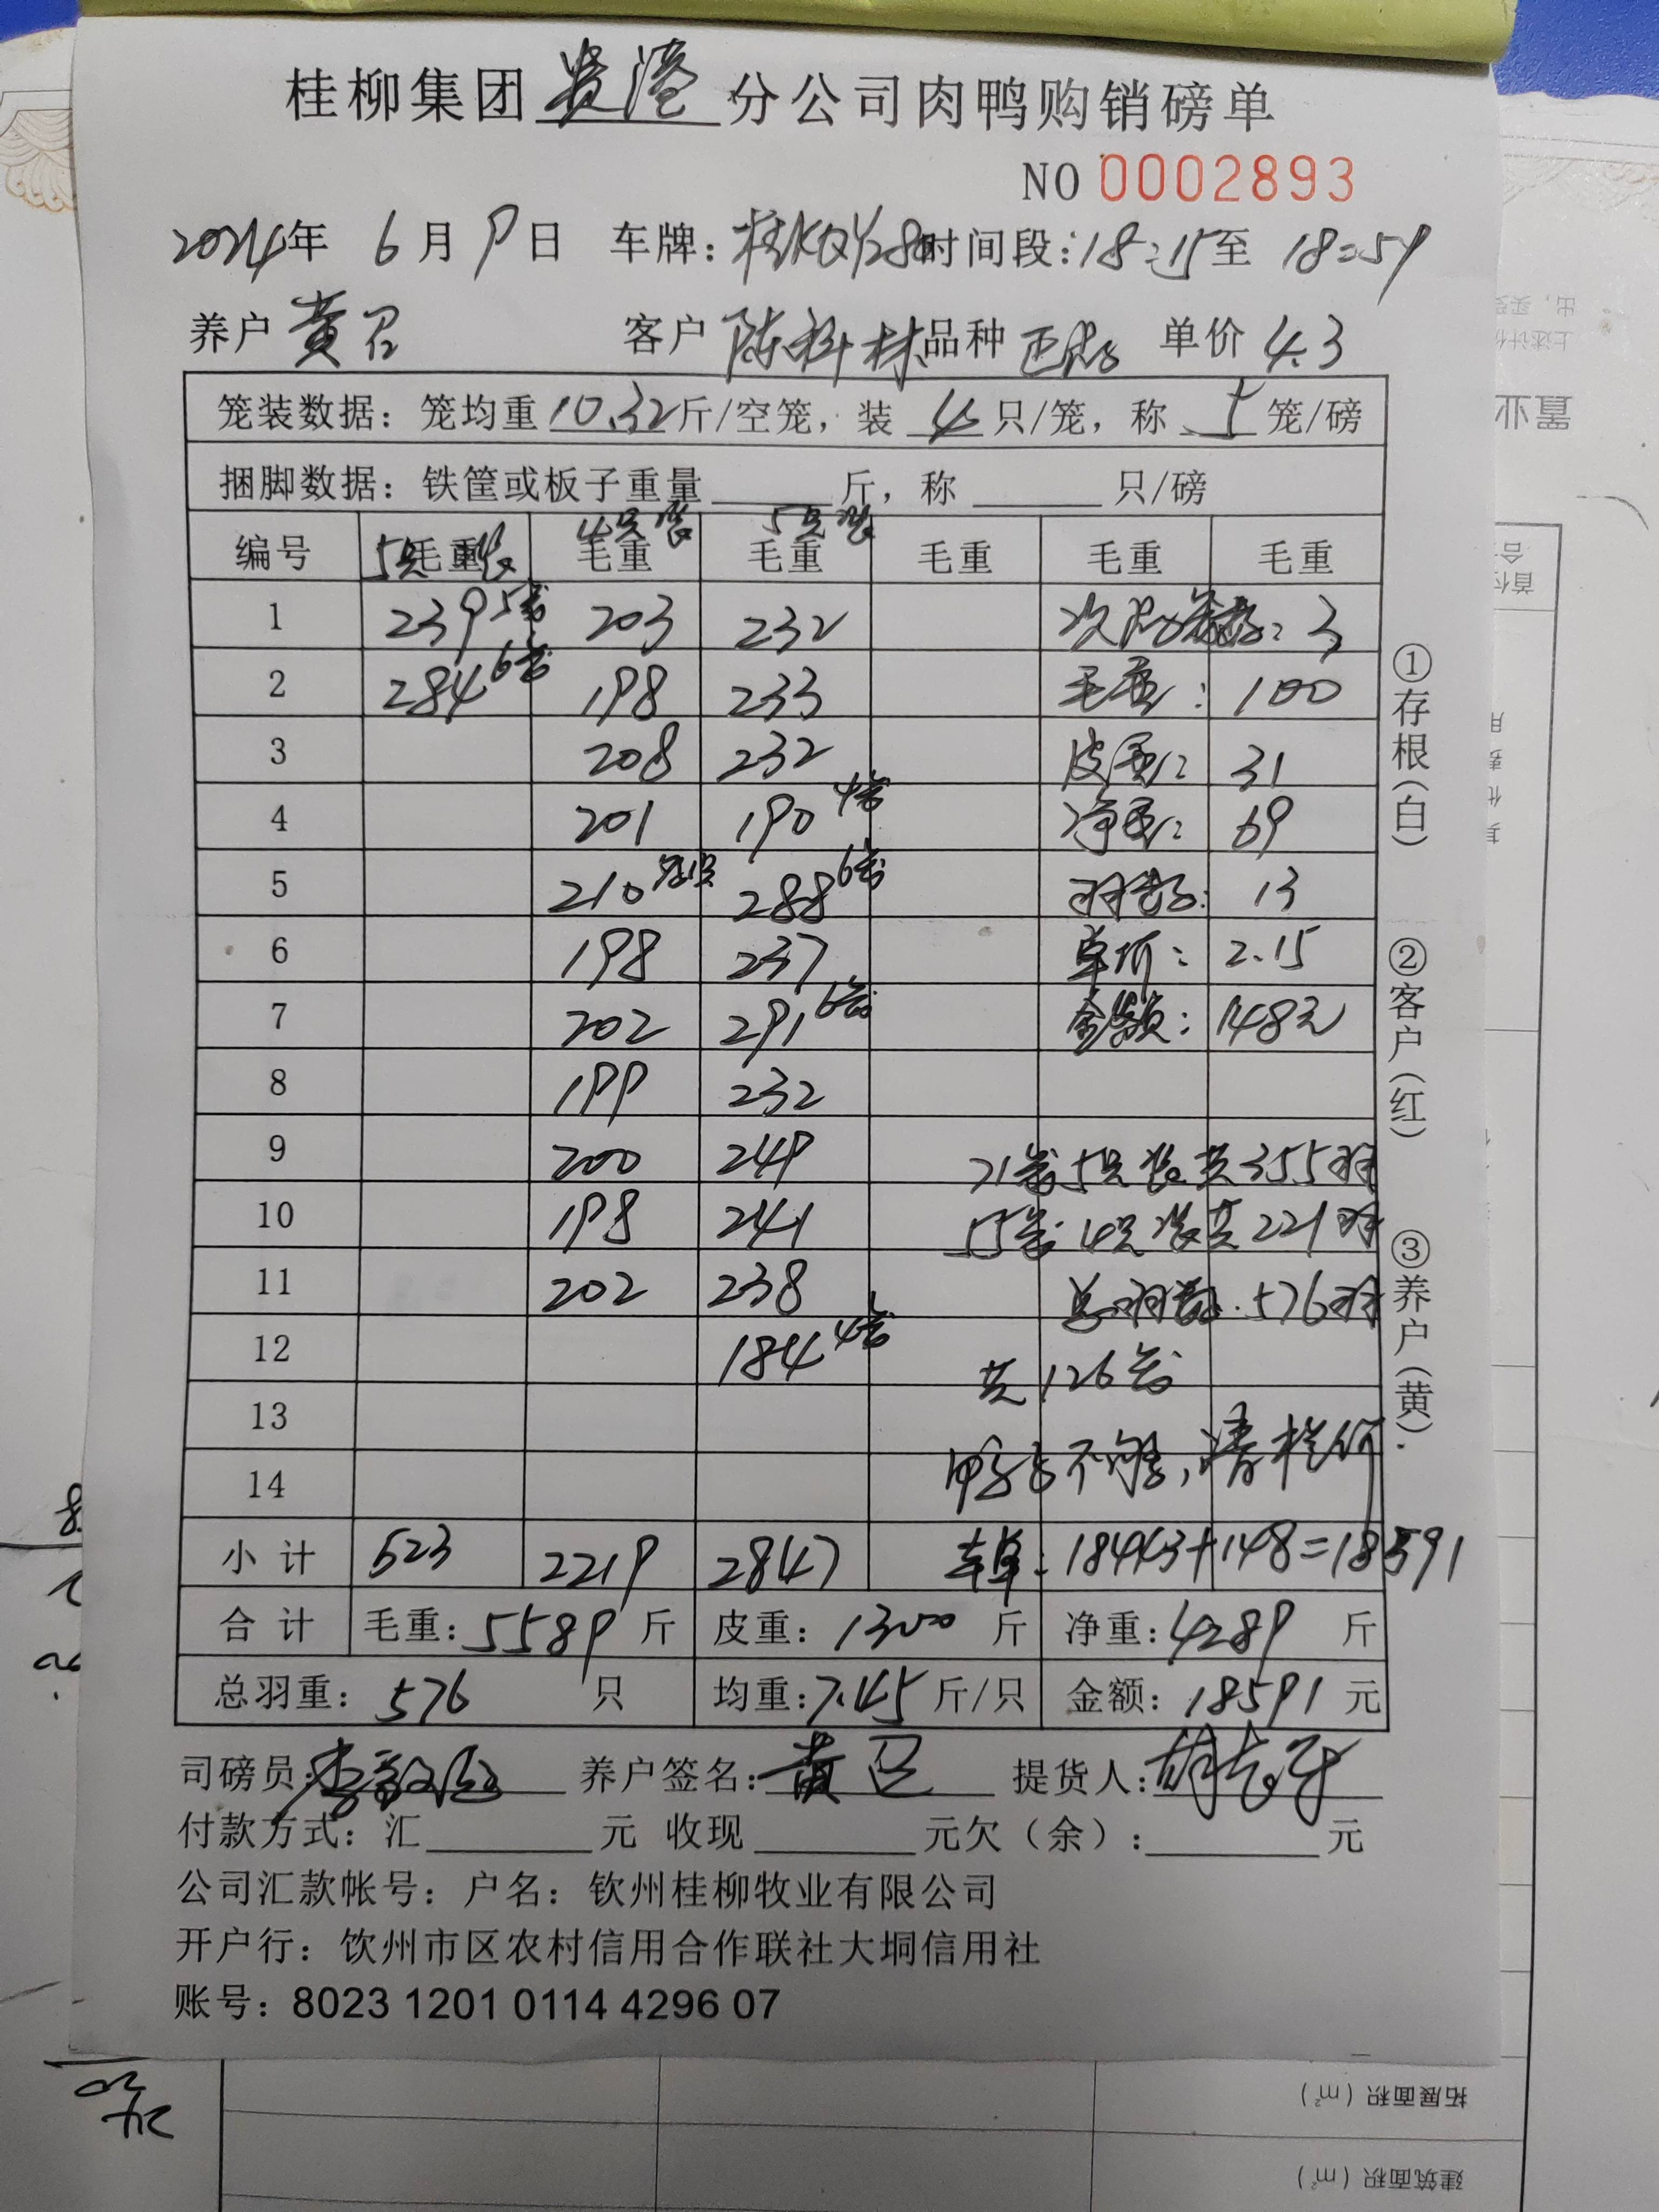 桂柳集团 贵港 分公司肉鸭购销磅单
NO 0002893
2024年 6月 9日 车牌: 时间段: 18:15 至 18:59
养户 黄召 客户 陈科林 品种 正品 单价 4.3
笼装数据: 笼均重 10.32 斤/空笼, 装 4 只/笼, 称 5 笼/磅
捆脚数据: 铁筐或板子重量 斤, 称 只/磅
5只装 4只装 5只装
编号 毛重 毛重 毛重 毛重 毛重 毛重
1 239 5笼 203 232 次品笼数: 3
2 284 6笼 198 233 毛重: 100
3 208 232 皮重: 31
4 201 190 4笼 净重: 69
5 210 288 6笼 羽数: 13
6 198 237 单价: 2.15
7 202 291 6笼 金额: 148元
8 199 232
9 200 249 71笼5只装共355羽
10 198 241 55笼4只装共221羽
11 202 238 总羽数: 576羽
12 184 4笼 共126笼
13
鸭子不够,请
14
小计 523 2219 2847 18443+148=18591
合计 毛重: 5589 斤 皮重: 1300 斤 净重: 4289 斤
总羽重: 576 只 均重: 7.45 斤/只 金额: 18591 元
司磅员: 养户签名: 黄召 提货人:
付款方式: 汇 元 收现 元欠(余): 元
公司汇款帐号: 户名: 钦州桂柳牧业有限公司
开户行: 饮州市区农村信用合作联社大垌信用社
账号: 8023 1201 0114 4296 07
①存根(白)
②客户(红)
③养户(黄)
拓展面积(m²)
建筑面积(m²)